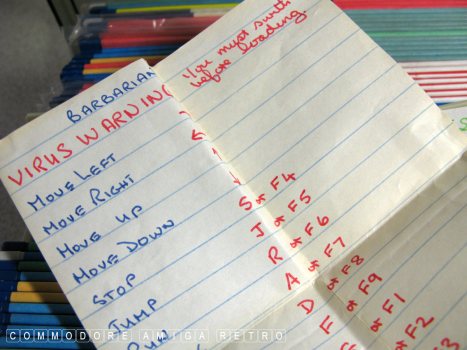 BARBARIAN
VIRUS WARNING
You must switch
before loading.
MOVE LEFT
MOVE RIGHT
MOVE UP ↑
MOVE DOWN ↓
STOP S or F4
JUMP J or F5
R or F6
A or F7
D or F8
F or F9
or F1
or F2
COMMODORE AMIGA RETRO